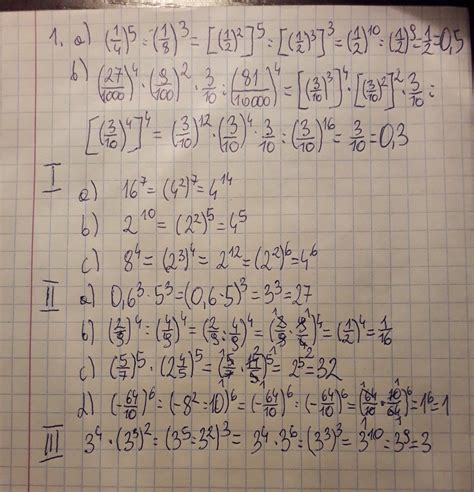 1. a) (1/4)^5 : (1/8)^3 = [(1/2)^2]^5 : [(1/2)^3]^3 = (1/2)^10 : (1/2)^9 = 1/2 = 0,5
b) (27/1000)^4 · (9/100)^2 · 3/10 : (81/10000)^4 = [(3/10)^3]^4 · [(3/10)^2]^2 · 3/10 :
[(3/10)^4]^4 = (3/10)^12 · (3/10)^4 · 3/10 : (3/10)^16 = 3/10 = 0,3
I
a) 16^7 = (4^2)^7 = 4^14
b) 2^10 = (2^2)^5 = 4^5
c) 8^4 = (2^3)^4 = 2^12 = (2^2)^6 = 4^6
II a) 0,6^3 · 5^3 = (0,6 · 5)^3 = 3^3 = 27
b) (2/9)^4 : (4/9)^4 = (2/9 : 4/9)^4 = (2/9 · 9/4)^4 = (1/2)^4 = 1/16
c) (5/7)^5 · (2 4/5)^5 = (5/7 · 14/5)^5 = 2^5 = 32
d) (-64/10)^6 : (-8^2 : 10)^6 = (-64/10)^6 : (-64/10)^6 = (64/10 · 10/64)^6 = 1^6 = 1
III 3^4 · (3^3)^2 : (3^5 : 3^2)^3 = 3^4 · 3^6 : (3^3)^3 = 3^10 : 3^9 = 3